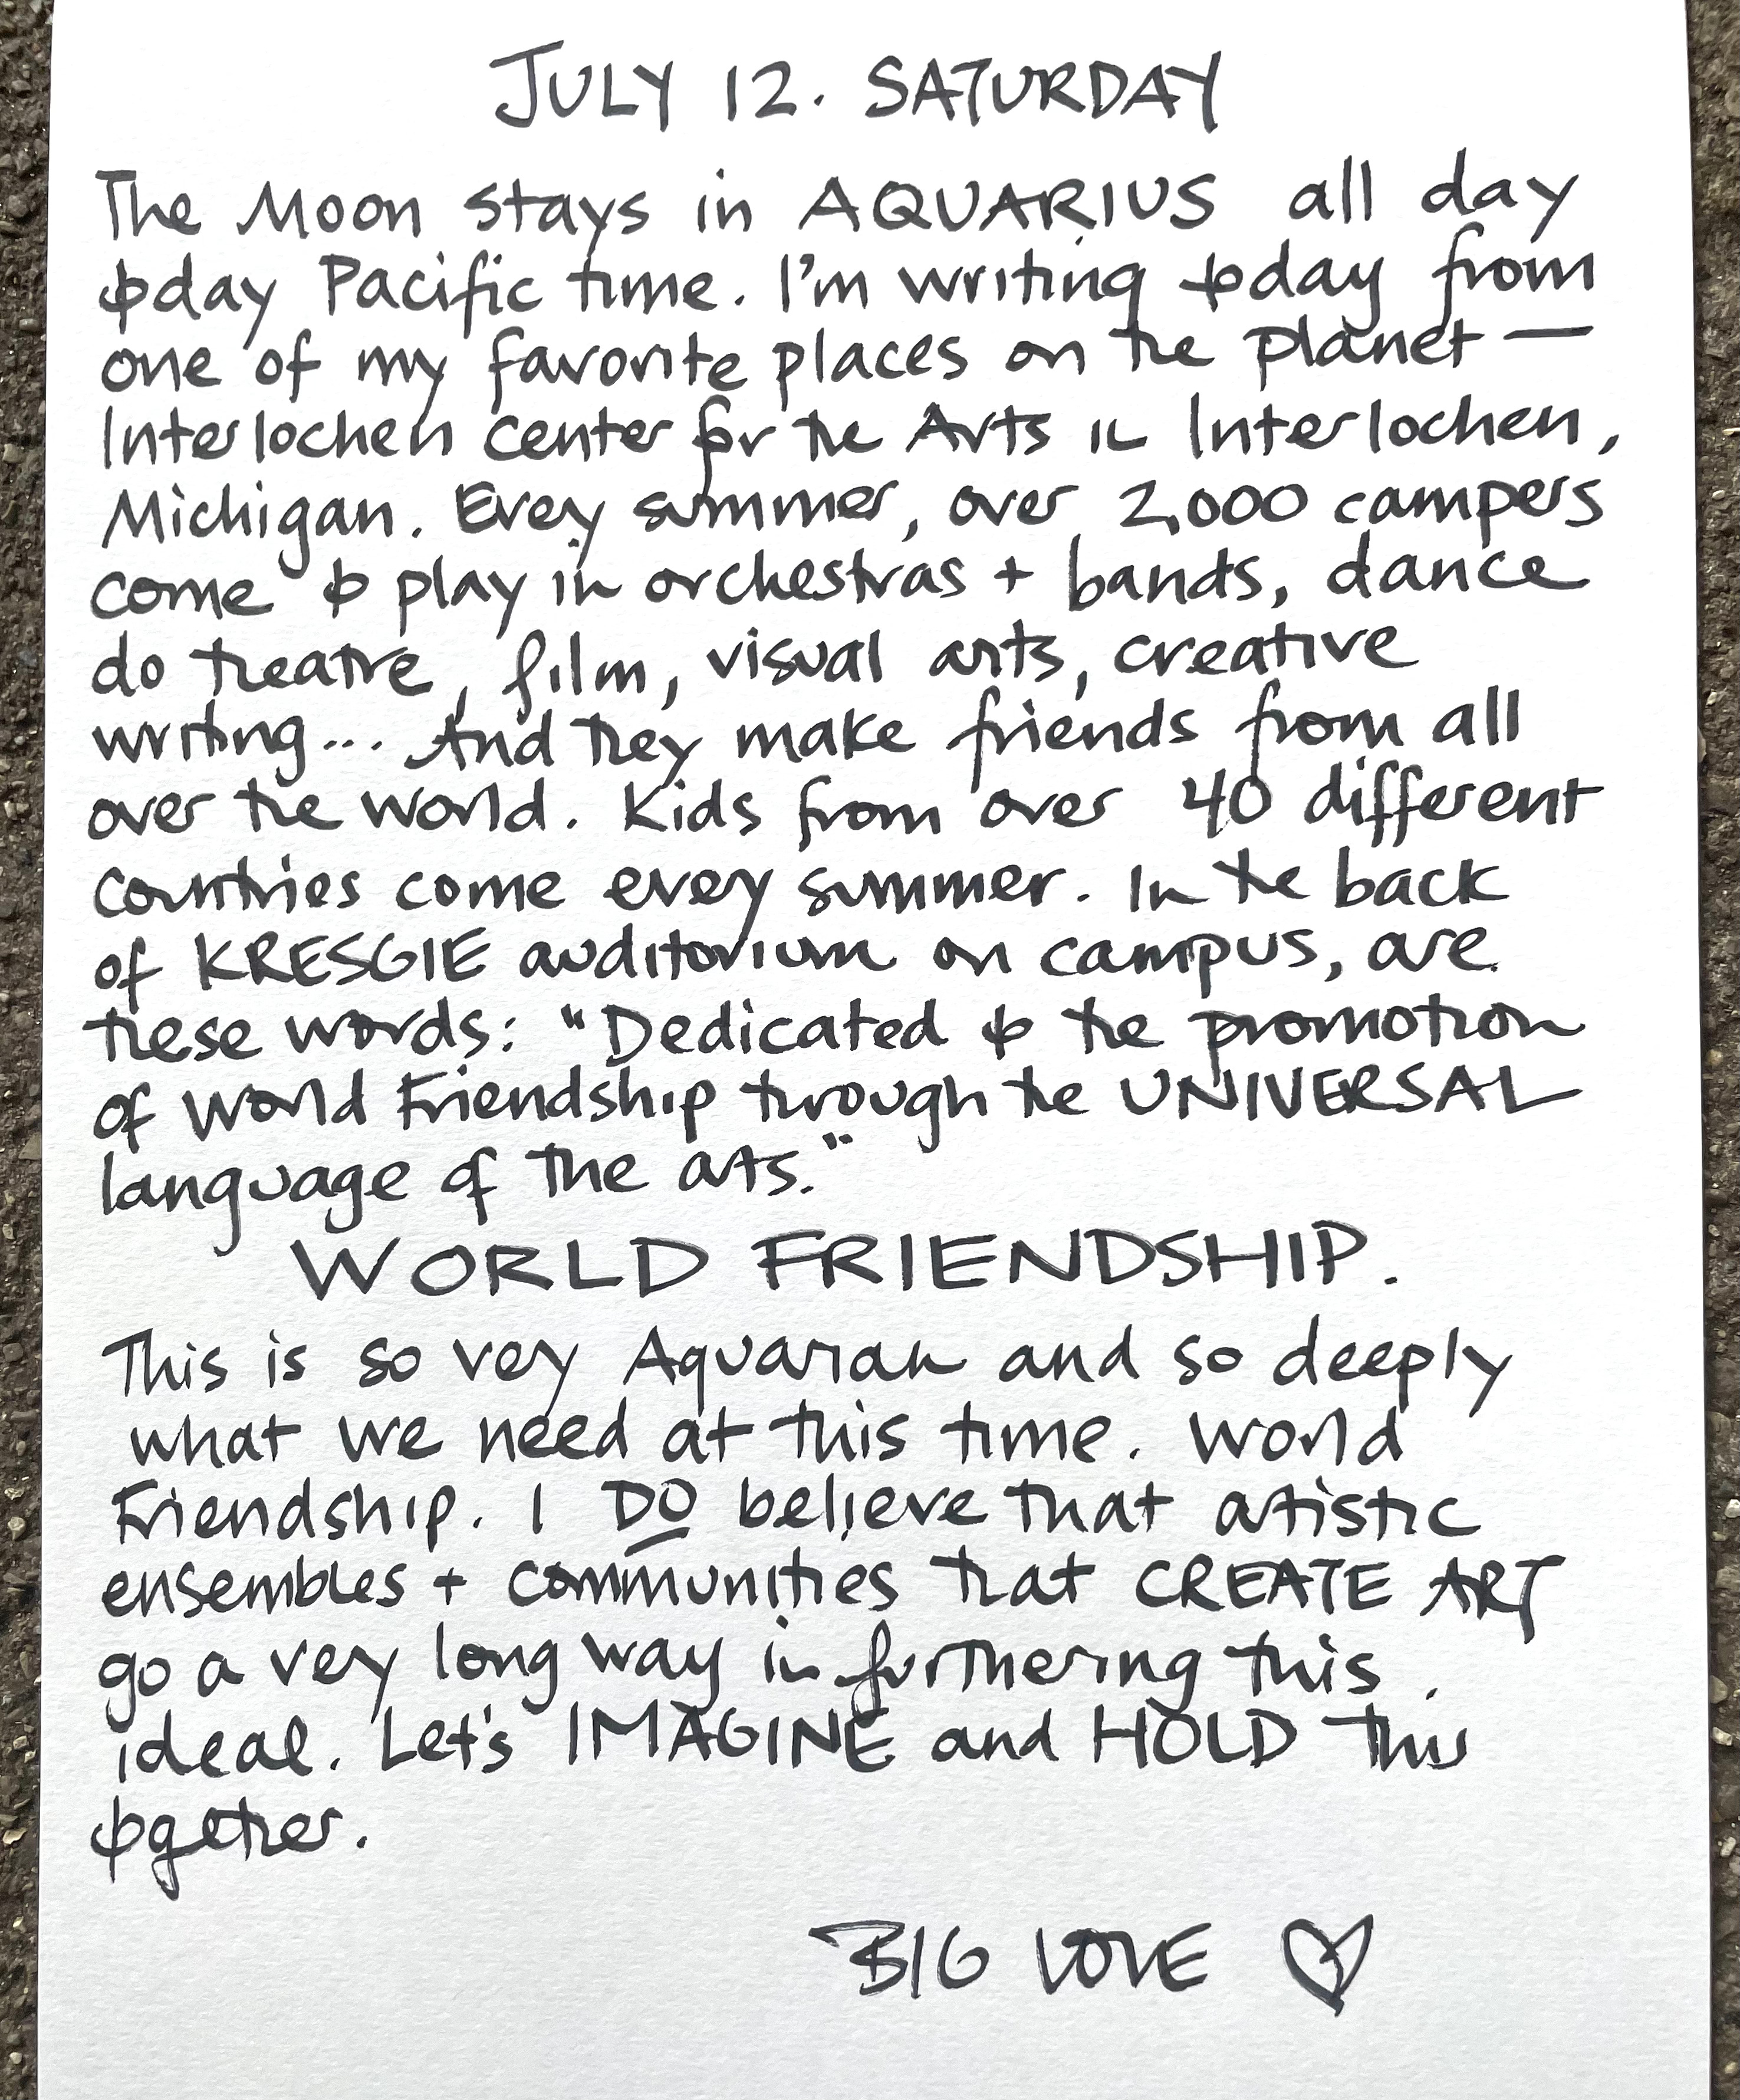 JULY 12. SATURDAY
The Moon stays in AQUARIUS all day
today Pacific time. I'm writing today from
one of my favorite places on the planet —
Interlochen Center for the Arts in Interlochen,
Michigan. Every summer, over 2,000 campers
come to play in orchestras + bands, dance
do theatre, film, visual arts, creative
writing... And they make friends from all
over the world. Kids from over 40 different
countries come every summer. In the back
of KRESGIE auditorium on campus, are
these words: "Dedicated to the promotion
of World Friendship through the UNIVERSAL
language of the arts."
WORLD FRIENDSHIP.
This is so very Aquarian and so deeply
what we need at this time. World
Friendship. I DO believe that artistic
ensembles + communities that CREATE ART
go a very long way in furthering this
ideal. Let's IMAGINE and HOLD this
together.
BIG LOVE ♡